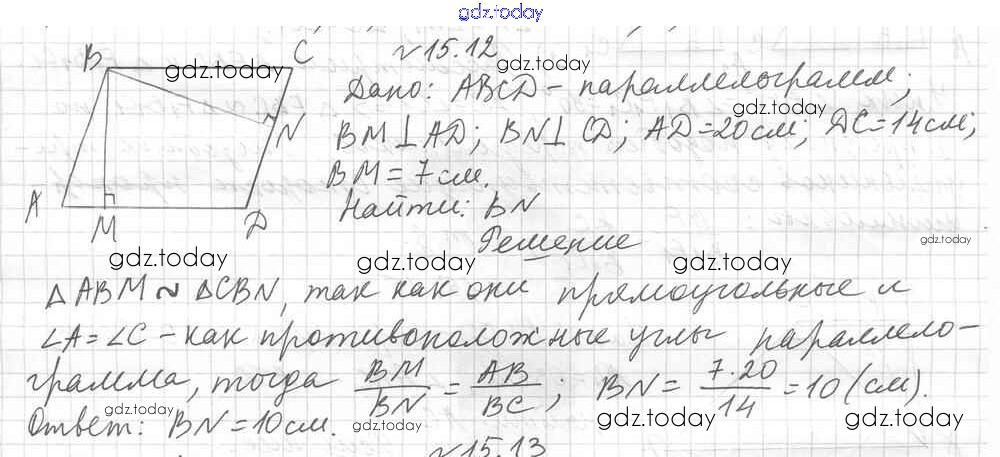 gdz.today
№15.12
B C
gdz.today gdz.today
Дано: ABCD – параллелограмм;
gdz.today
N
BM⊥AD; BN⊥CD; AD=20см; DC=14см;
BM=7см.
A M D
Найти: BN
Решение
gdz.today
gdz.today gdz.today gdz.today
△ABM ~ △CBN, так как они прямоугольные и
∠A=∠C – как противоположные углы параллело-
грамма, тогда BM/BN = AB/BC; BN = 7·20/14 = 10 (см).
gdz.today gdz.today gdz.today
Ответ: BN=10см.
№15.13